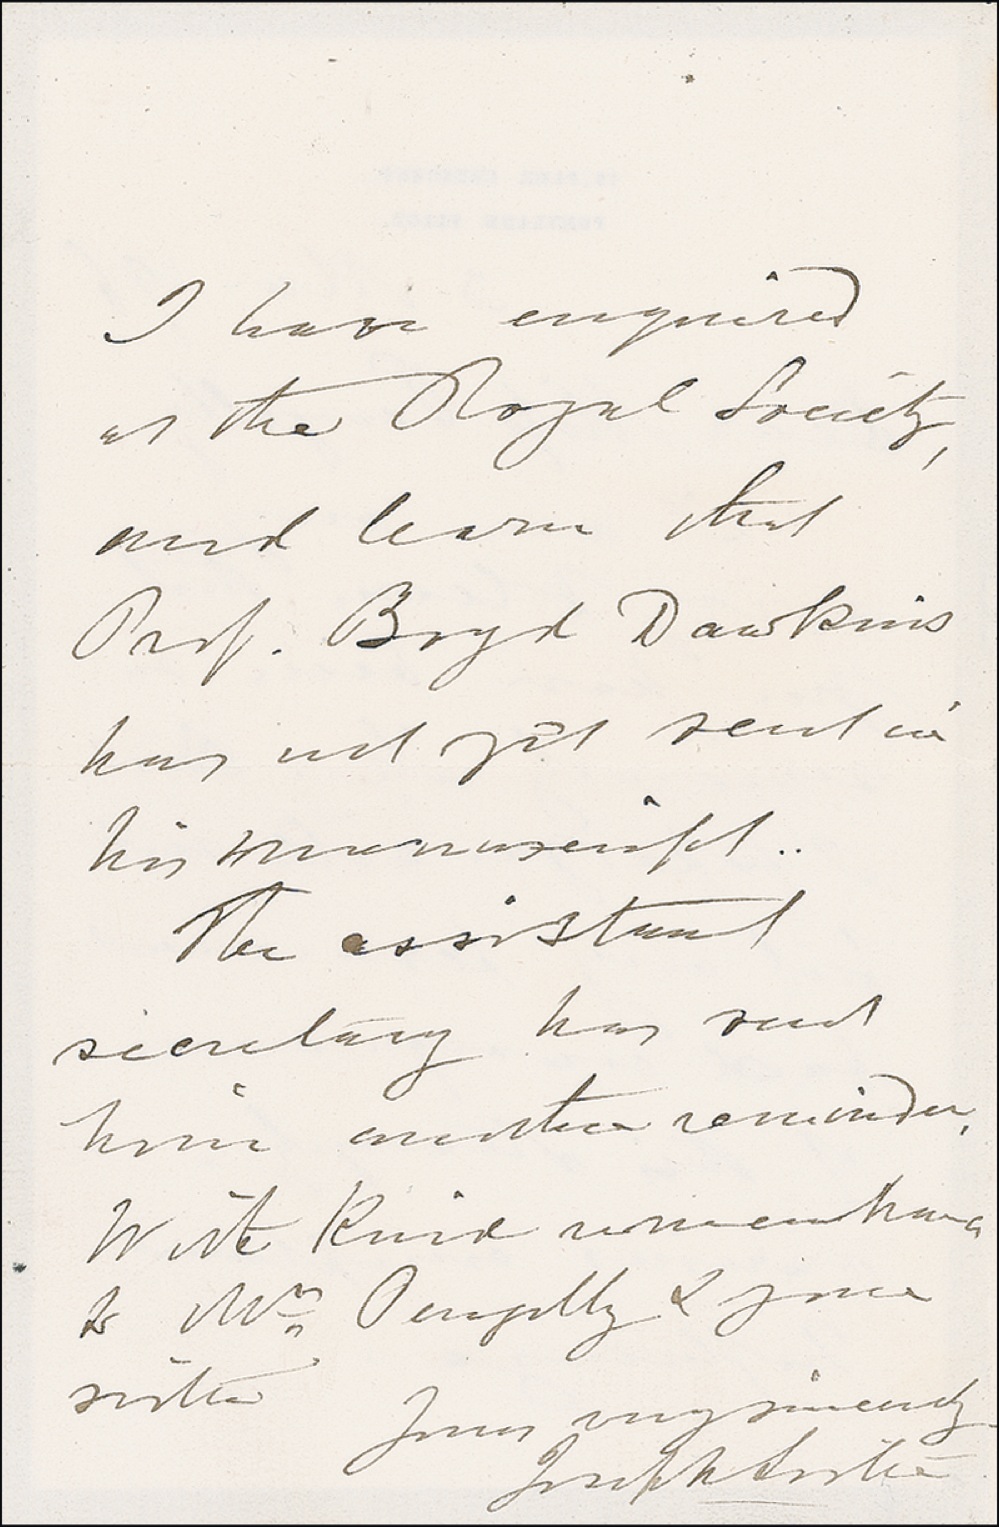 I have enquired
at the Royal Society,
and learn that
Prof. Boyd Dawkins
has not yet sent in
his manuscript..
The assistant
secretary has sent
him another reminder.
With kind remembrance
to Mrs Pengelly & your
sister
Yours very sincerely
Joseph Lister